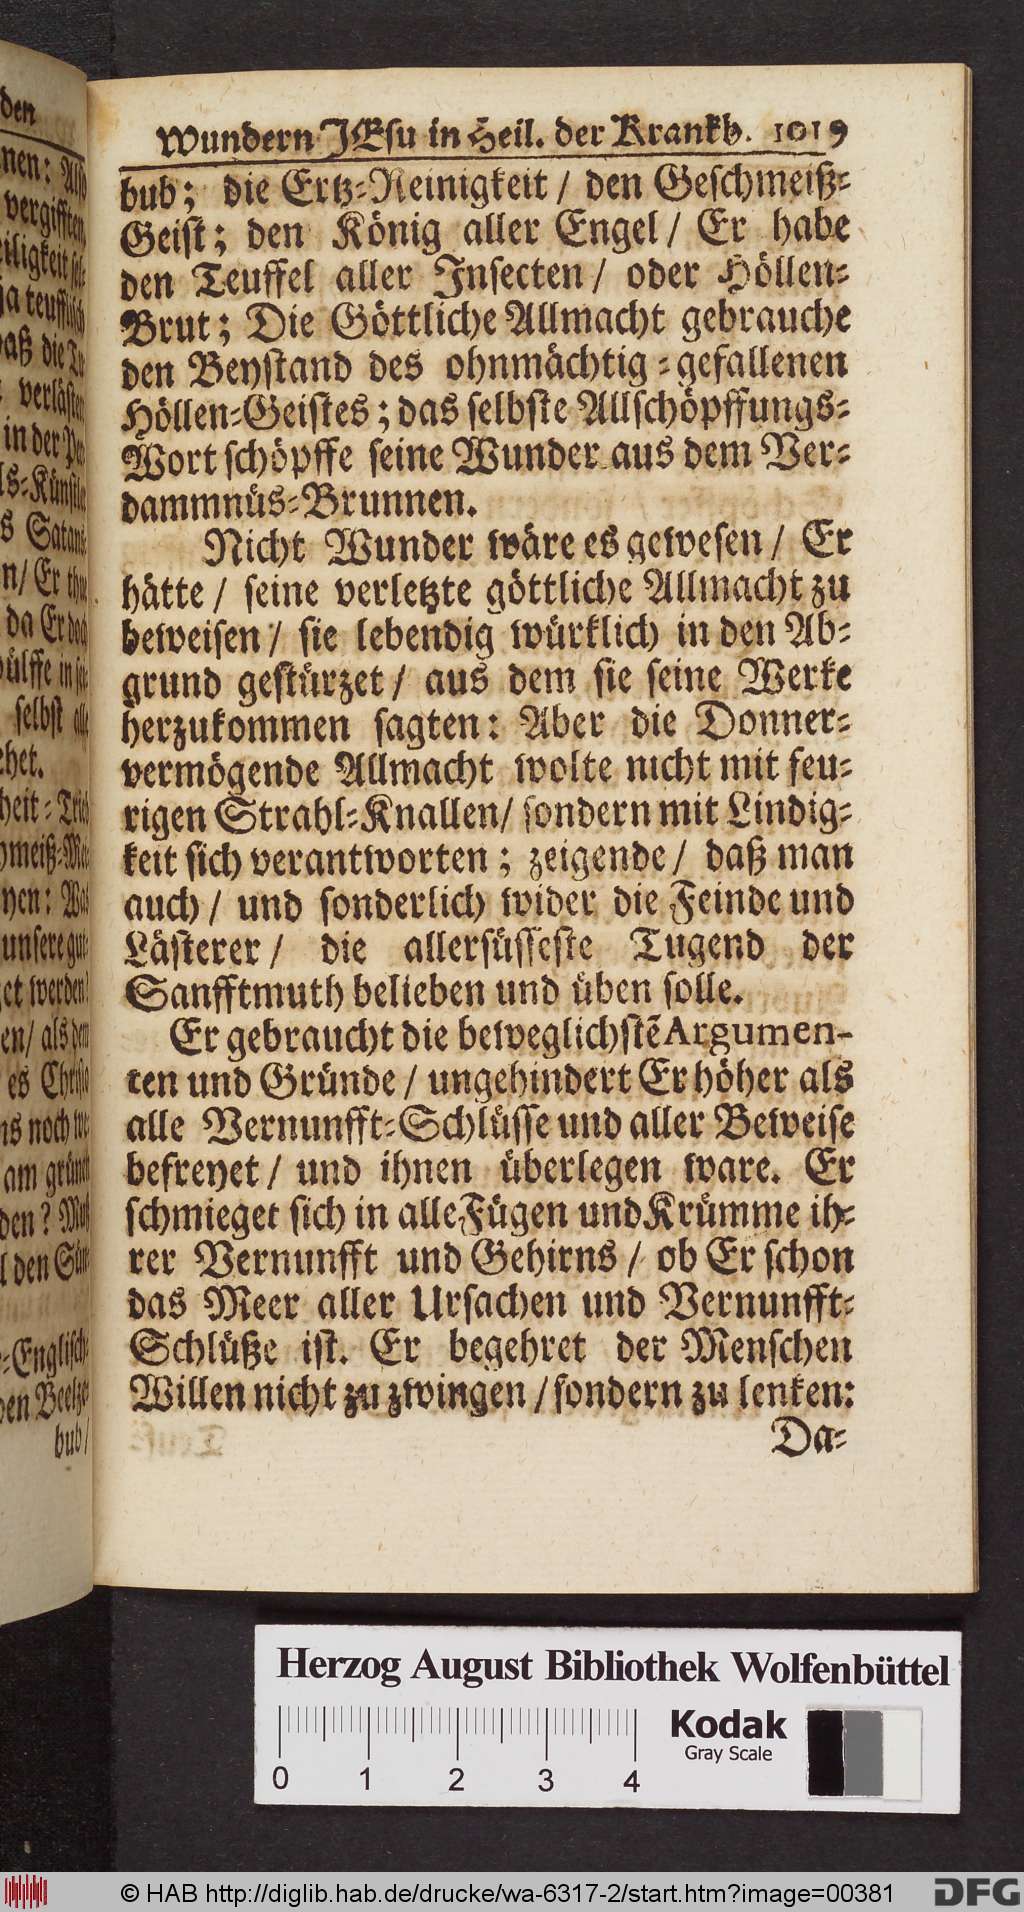 Wundern JEsu in Heil. der Krankh. 1019
bub; die Ertz-Reinigkeit / den Geschmeiß-
Geist; den König aller Engel / Er habe
den Teuffel aller Insecten / oder Höllen-
Brut; Die Göttliche Allmacht gebrauche
den Beystand des ohnmächtig-gefallenen
Höllen-Geistes; das selbste Allschöpffungs-
Wort schöpffe seine Wunder aus dem Ver-
dammnüs-Brunnen.
Nicht Wunder wäre es gewesen / Er
hätte / seine verletzte göttliche Allmacht zu
beweisen / sie lebendig würklich in den Ab-
grund gestürzet / aus dem sie seine Werke
herzukommen sagten: Aber die Donner-
vermögende Allmacht wolte nicht mit feu-
rigen Strahl-Knallen / sondern mit Lindig-
keit sich verantworten; zeigende / daß man
auch / und sonderlich wider die Feinde und
Lästerer / die allersüsseste Tugend der
Sanfftmuth belieben und üben solle.
Er gebraucht die beweglichstẽ Argumen-
ten und Gründe / ungehindert Er höher als
alle Vernunfft-Schlüsse und aller Beweise
befreyet / und ihnen überlegen ware. Er
schmieget sich in alle Fügen und Krümme ih-
rer Vernunfft und Gehirns / ob Er schon
das Meer aller Ursachen und Vernunfft-
Schlüße ist. Er begehret der Menschen
Willen nicht zu zwingen / sondern zu lenken:
Da-
Herzog August Bibliothek Wolfenbüttel
Kodak
Gray Scale
0 1 2 3 4
© HAB http://diglib.hab.de/drucke/wa-6317-2/start.htm?image=00381
DFG